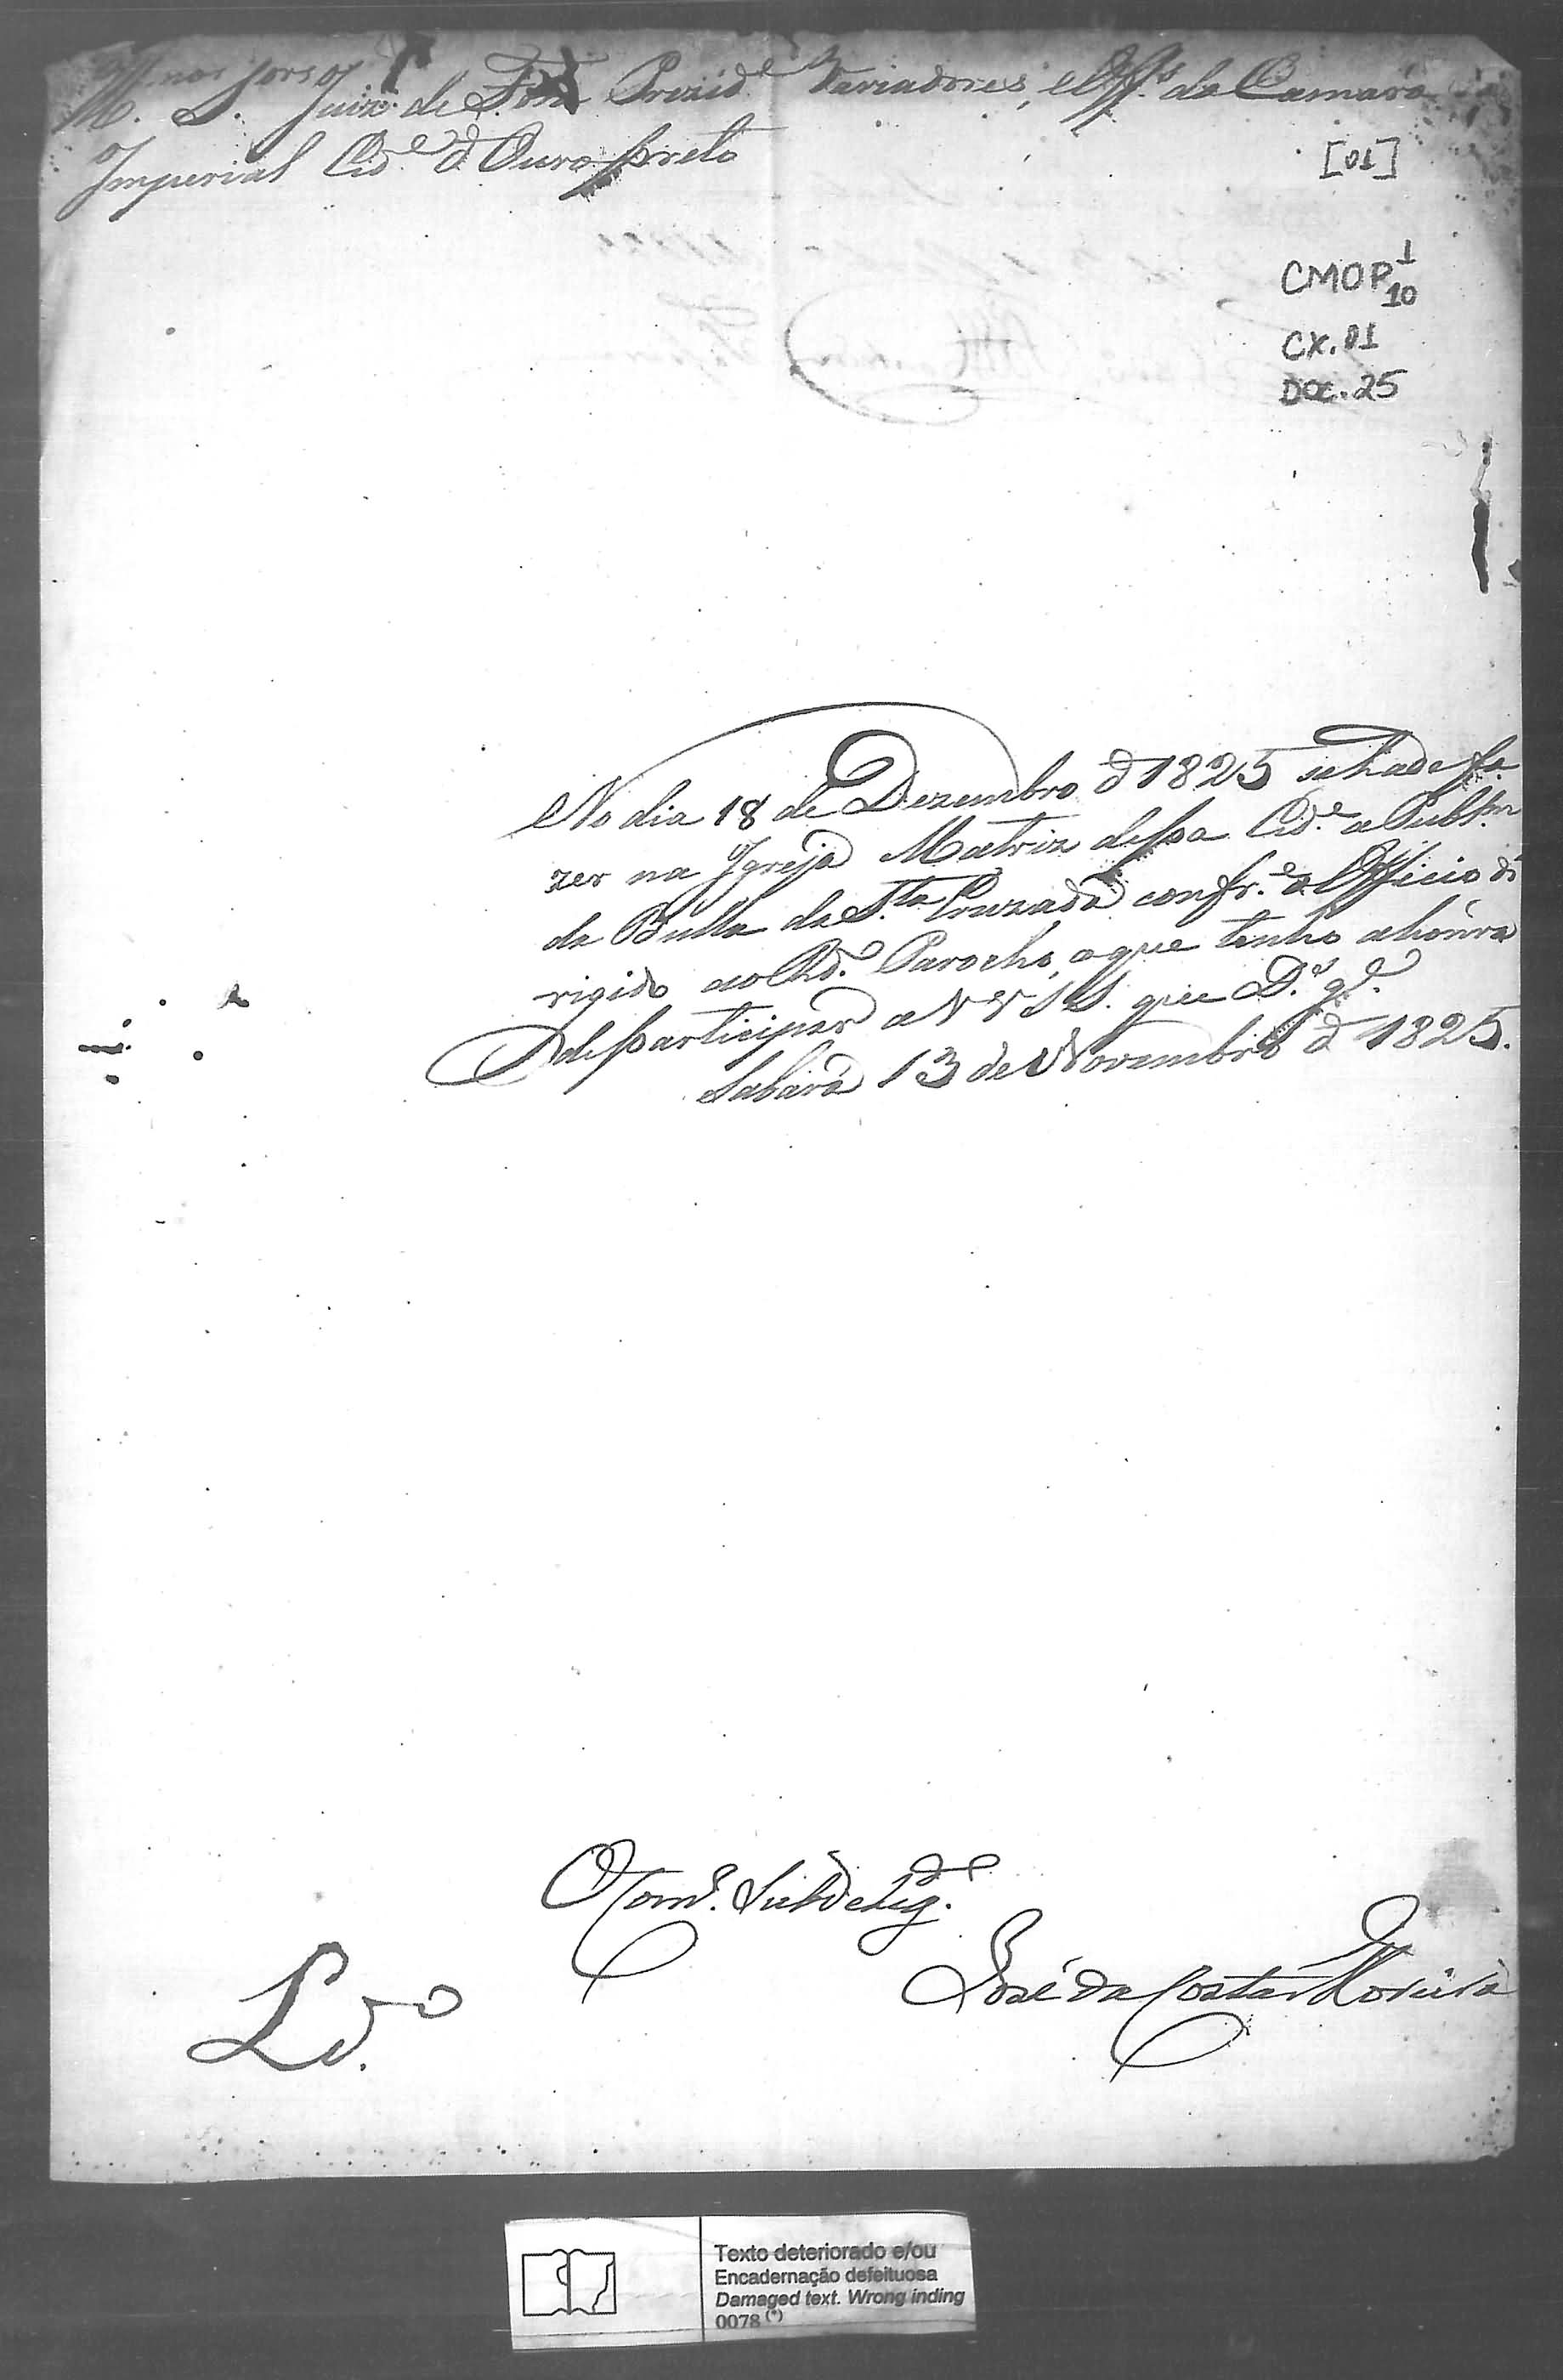 Ill.mos Snr.s Juiz de Fora Prezid.e Variadores, e Off.s da Camara da
Imperial Cid.e d Ouro preto
[01]
CMOP 1
10
CX. 01
DOC. 25
No dia 18 de Dezembro d 1825 se hade fa
zer na Igreja Matriz dessa Cid.e a Publ.m
da Bulla da S.ta Cruzada confr.e o Officio di
rigido ao Rd.o Parocho, o que tenho a honra
de participar a V V S S. que D.s g.e
Sabará 13 de Novembro d 1825.
O Com.o Subdeleg.do
José da Costa Moreira
L.do
Texto deteriorado e/ou
Encadernação defeituosa
Damaged text. Wrong inding
0078 (*)